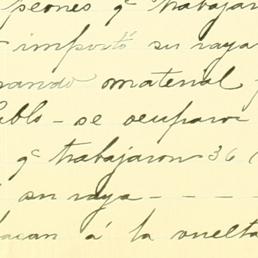 peones q trabajaron
importó su raya
material
se ocuparon
q trabajaron 36
su raya - - - -
á la vuelta